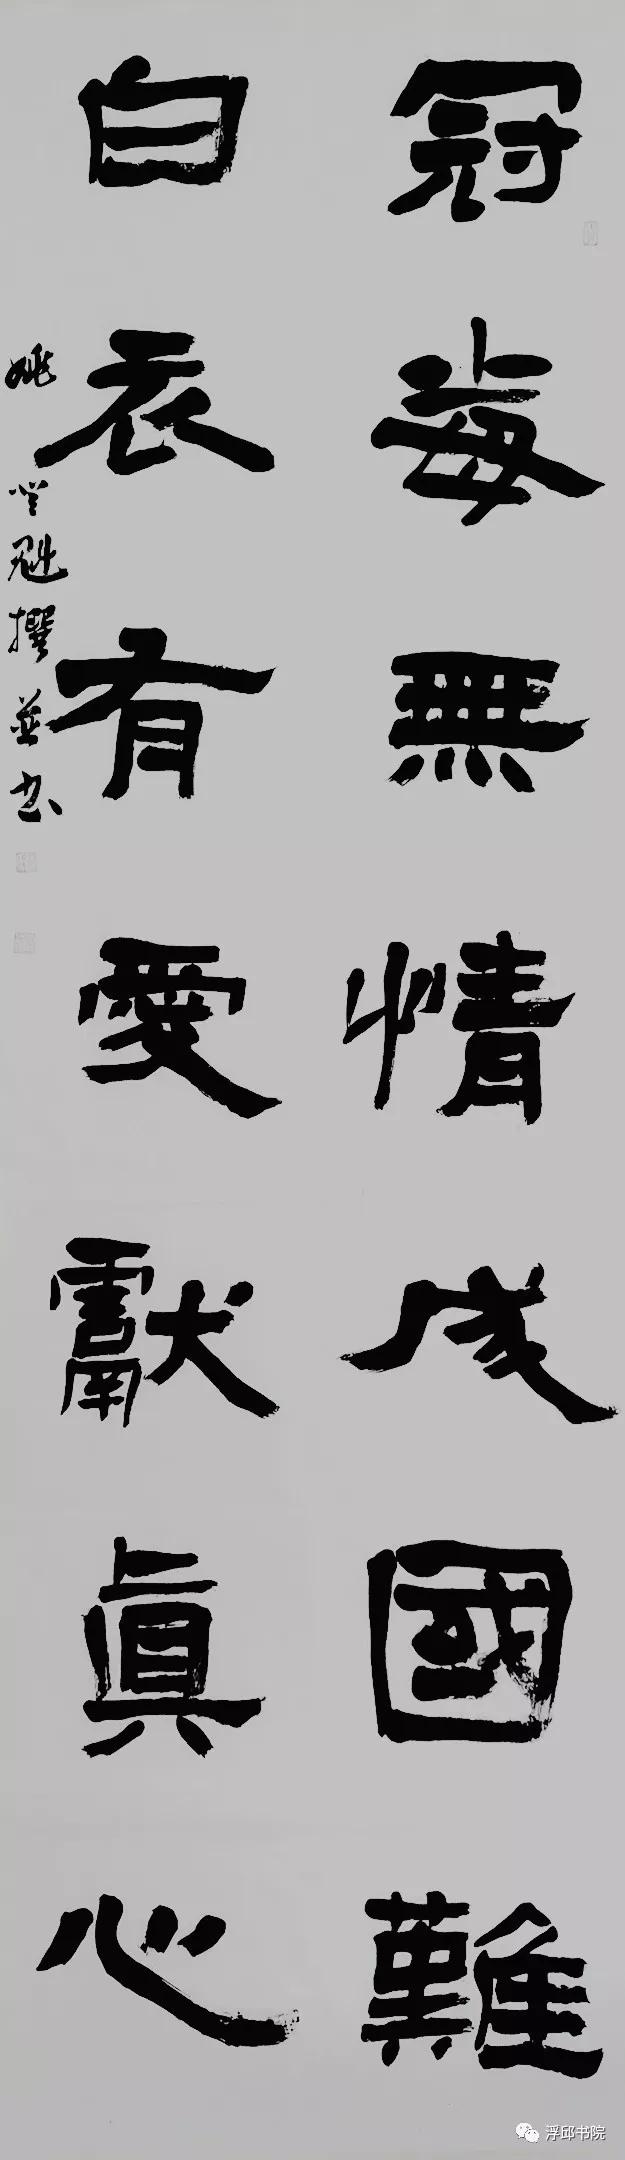 冠毒無情成國難
白衣有愛獻眞心
姚魁撰並书
浮邱书院